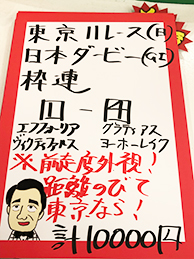 東京11レース(日)
日本ダービー(GI)
枠連
1 - 4
エフフォーリア グラティアス
ヴィクティファルス ヨーホーレイク
※前走度外視！
距離のびて
東京なら！
計10000円